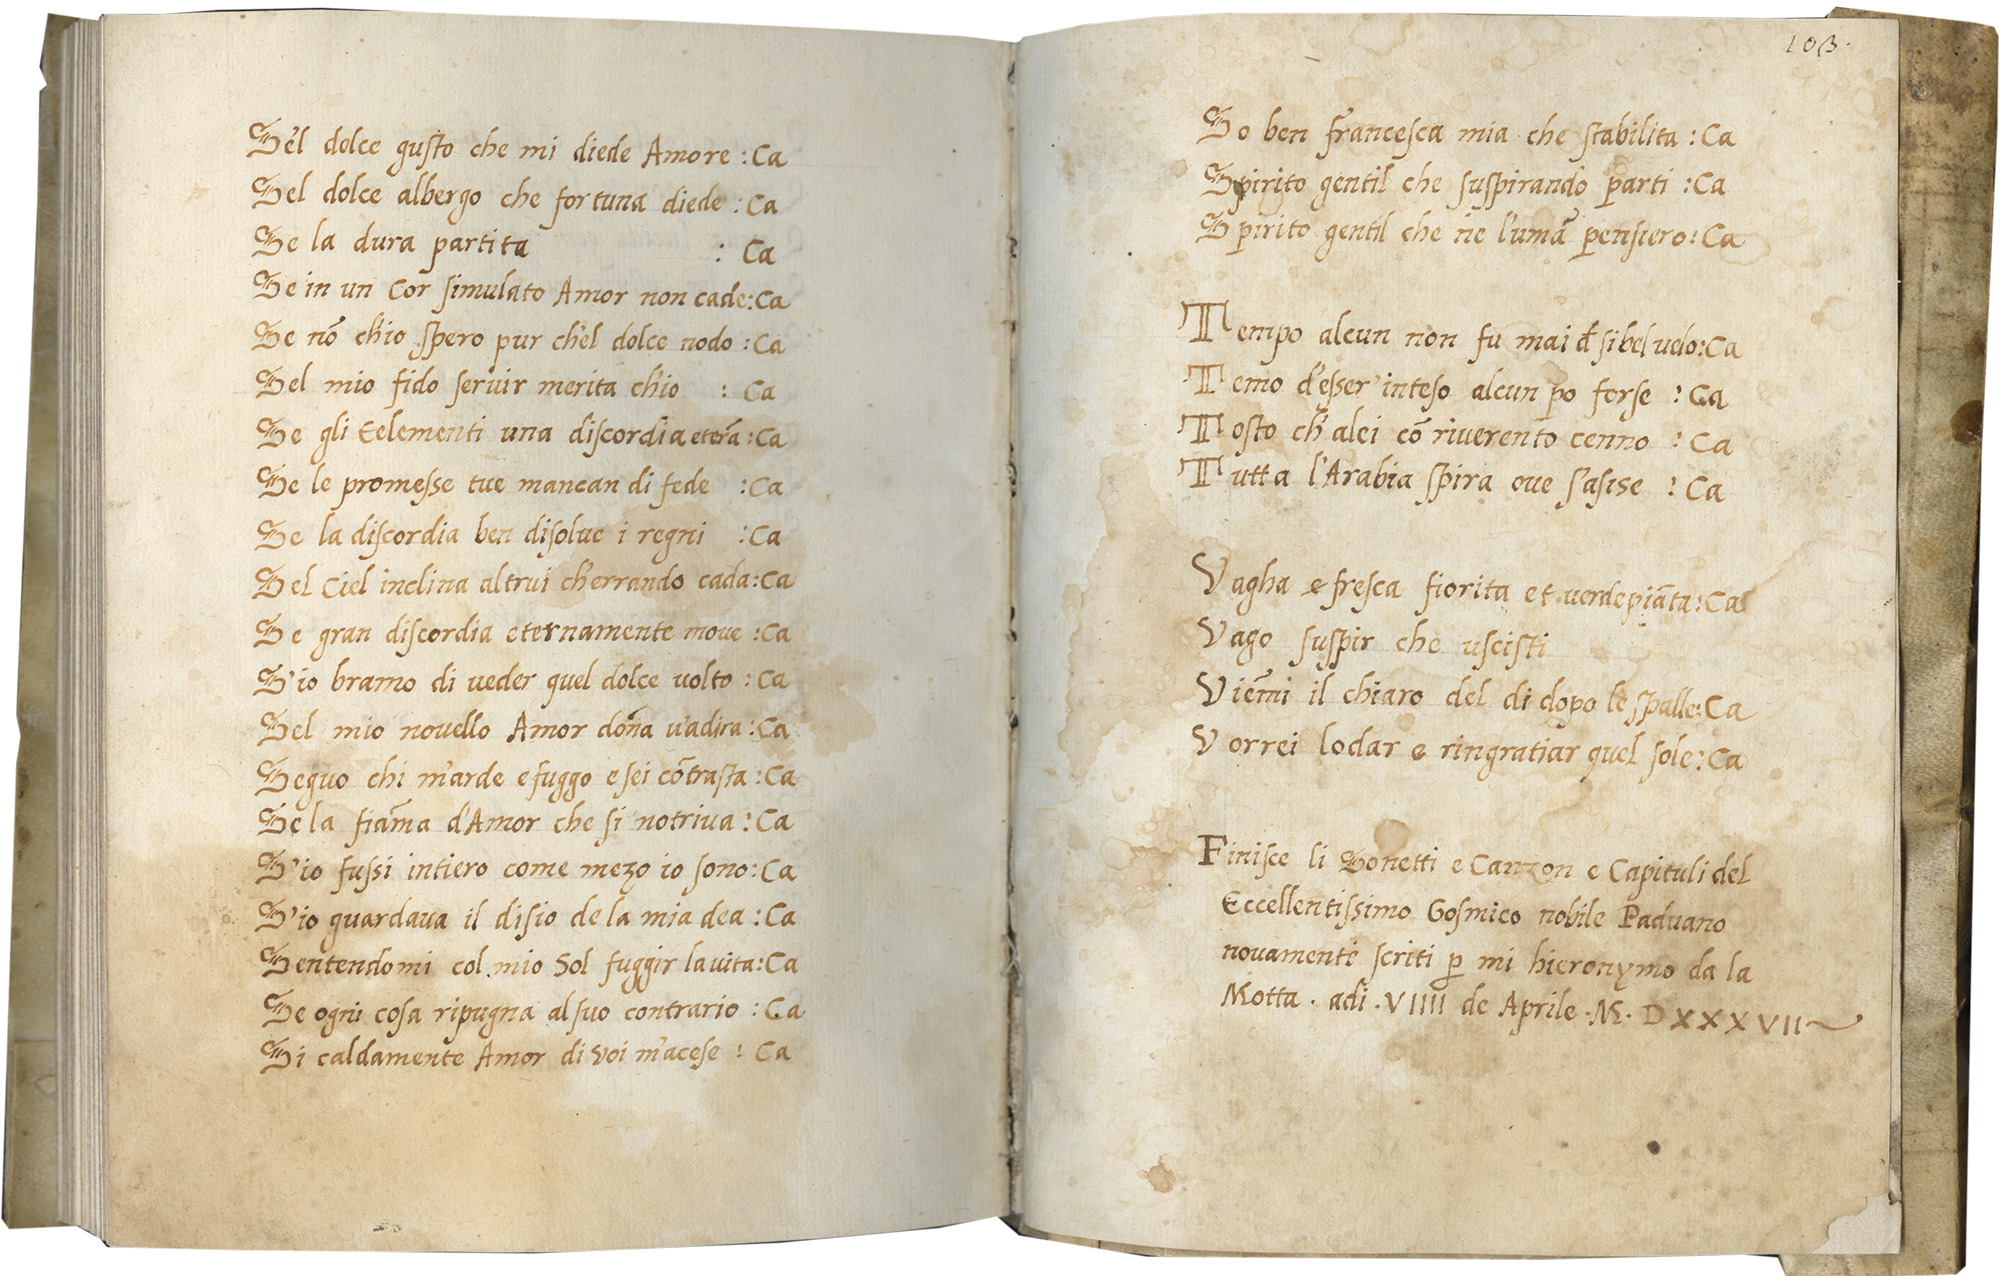 S'el dolce gusto che mi diede Amore : Ca
Sel dolce albergo che fortuna diede : Ca
Se la dura partita : Ca
Se in un Cor simulato Amor non cade : Ca
Se nõ ch'io spero pur ch'el dolce nodo : Ca
Sel mio fido servir merita ch'io : Ca
Se gli Eelementi una discordia eterña : Ca
Se le promesse tue mancan di fede : Ca
Se la discordia ben disolue i regni : Ca
Sel Ciel inclina altrui ch'errando cada : Ca
Se gran discordia eternamente move : Ca
S'io bramo di veder quel dolce volto : Ca
Sel mio novello Amor doña v'adira : Ca
Seguo chi m'arde e fuggo e sei cõtrasta : Ca
Se la fiam̃a d'Amor che si notriua : Ca
S'io fussi intiero come mezo io sono : Ca
S'io guardava il disio de la mia dea : Ca
Sentendomi col mio Sol fuggir la vita : Ca
Se ogni cosa ripugna al suo contrario : Ca
Si caldamente Amor di voi m'acese : Ca
103.
So ben francesca mia che stabilita : Ca
Spirito gentil che suspirando parti : Ca
Spirito gentil che ne l'umã pensiero : Ca
Tempo alcun non fu mai d̃ si bel uelo : Ca
Temo d'esser inteso alcun po forse : Ca
Tosto ch̃ alei cõ riverento cenno : Ca
Tutta l'Arabia spira ove s'asise : Ca
Vagha e fresca fiorita et verde piãta : Ca
Vago suspir che uscisti
Viem̃i il chiaro del di dopo le spalle : Ca
Vorrei lodar e ringratiar quel sole : Ca
Finisce li Sonetti e Canzon e Capituli del
Eccellentissimo Gosmico nobile Paduano
novamente scriti p mi hieronymo da la
Motta . adi . VIIII de Aprile . M . DXXXVII